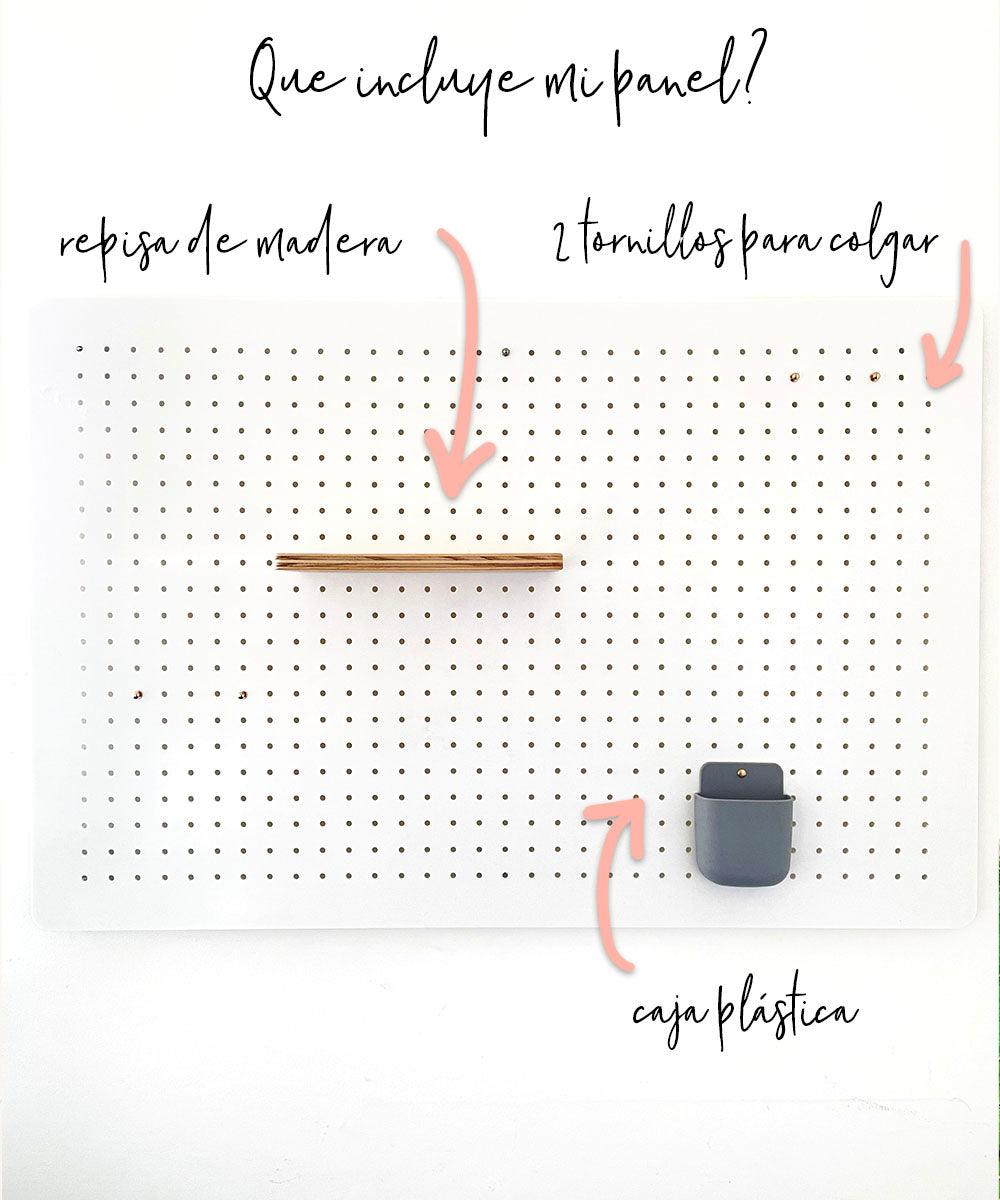 Que incluye mi panel?
repisa de madera
2 tornillos para colgar
caja plástica